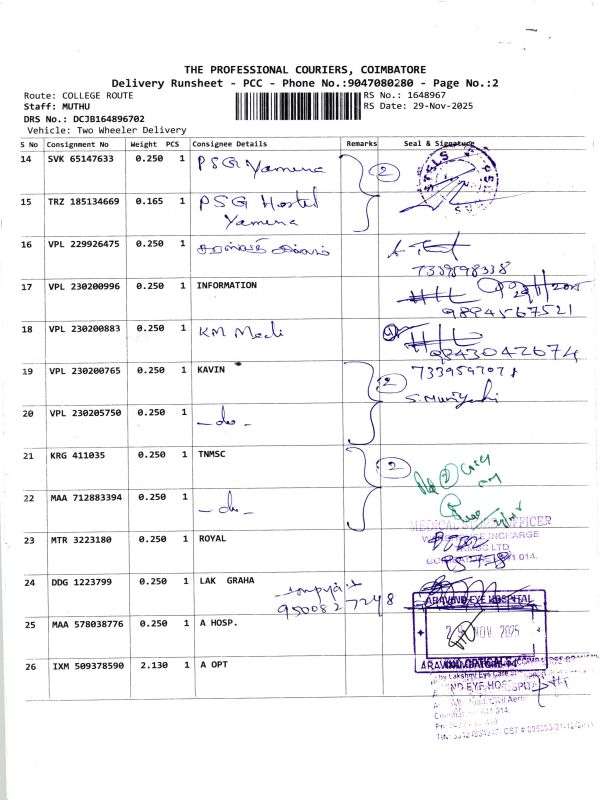 THE PROFESSIONAL COURIERS, COIMBATORE
Delivery Runsheet - PCC - Phone No.:9047080280 - Page No.:2
Route: COLLEGE ROUTE RS No.: 1648967
Staff: MUTHU RS Date: 29-Nov-2025
DRS No.: DCJB164896702
Vehicle: Two Wheeler Delivery
S No Consignment No Weight PCS Consignee Details Remarks Seal & Signature
14 SVK 65147633 0.250 1 PSG Yamuna 2
15 TRZ 185134669 0.165 1 PSG Hostel
Yamuna
16 VPL 229926475 0.250 1
7339598338
17 VPL 230200996 0.250 1 INFORMATION
9894567521
18 VPL 230200883 0.250 1 KM Medi
9843042674
19 VPL 230200765 0.250 1 KAVIN 2
20 VPL 230205750 0.250 1 - do -
21 KRG 411035 0.250 1 TNMSC 2
22 MAA 712883394 0.250 1 - do -
23 MTR 3223180 0.250 1 ROYAL
24 DDG 1223799 0.250 1 LAK GRAHA
9500827248
ARAVIND EYE HOSPITAL
25 MAA 578038776 0.250 1 A HOSP.
NOV 2025
26 IXM 509378590 2.130 1 A OPT